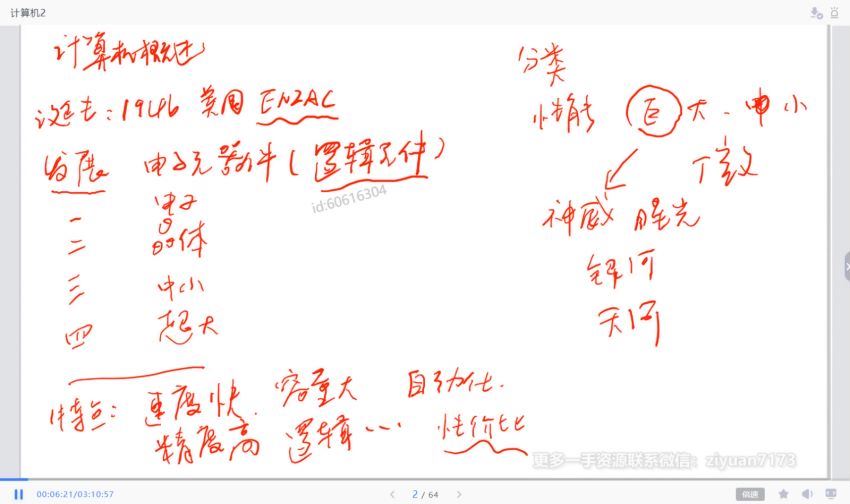 计算机2
计算机概述
诞生：1946 美国 ENIAC
发展 电子元器件（逻辑元件）
一 电子
二 晶体
三 中小
四 超大
特点：速度快. 容量大 自动化.
精度高 逻辑… 性价比
分类
性能 巨 大、中 小
个 微
神威 曙光
银河
天河
id:60616304
更多一手资源联系微信：ziyuan7173
00:06:21/03:10:57
2 / 64
倍速